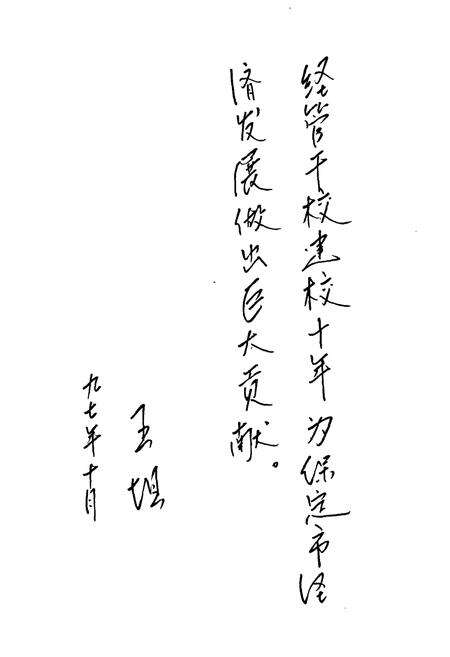 经管干校建校十年为保定市经
济发展做出巨大贡献。
王坦
九七年十月